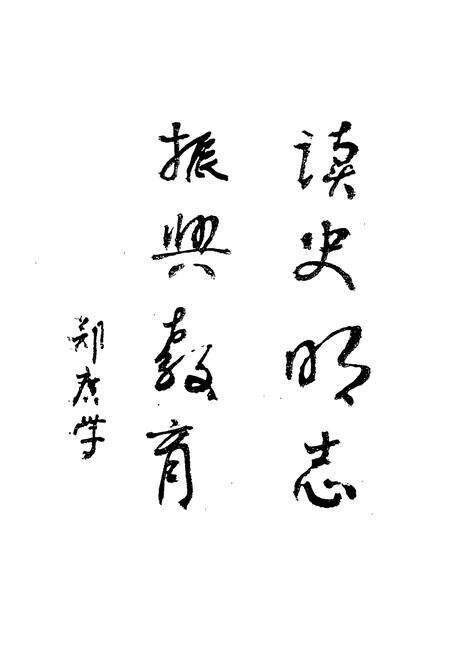 读史明志
振興教育
郑广学